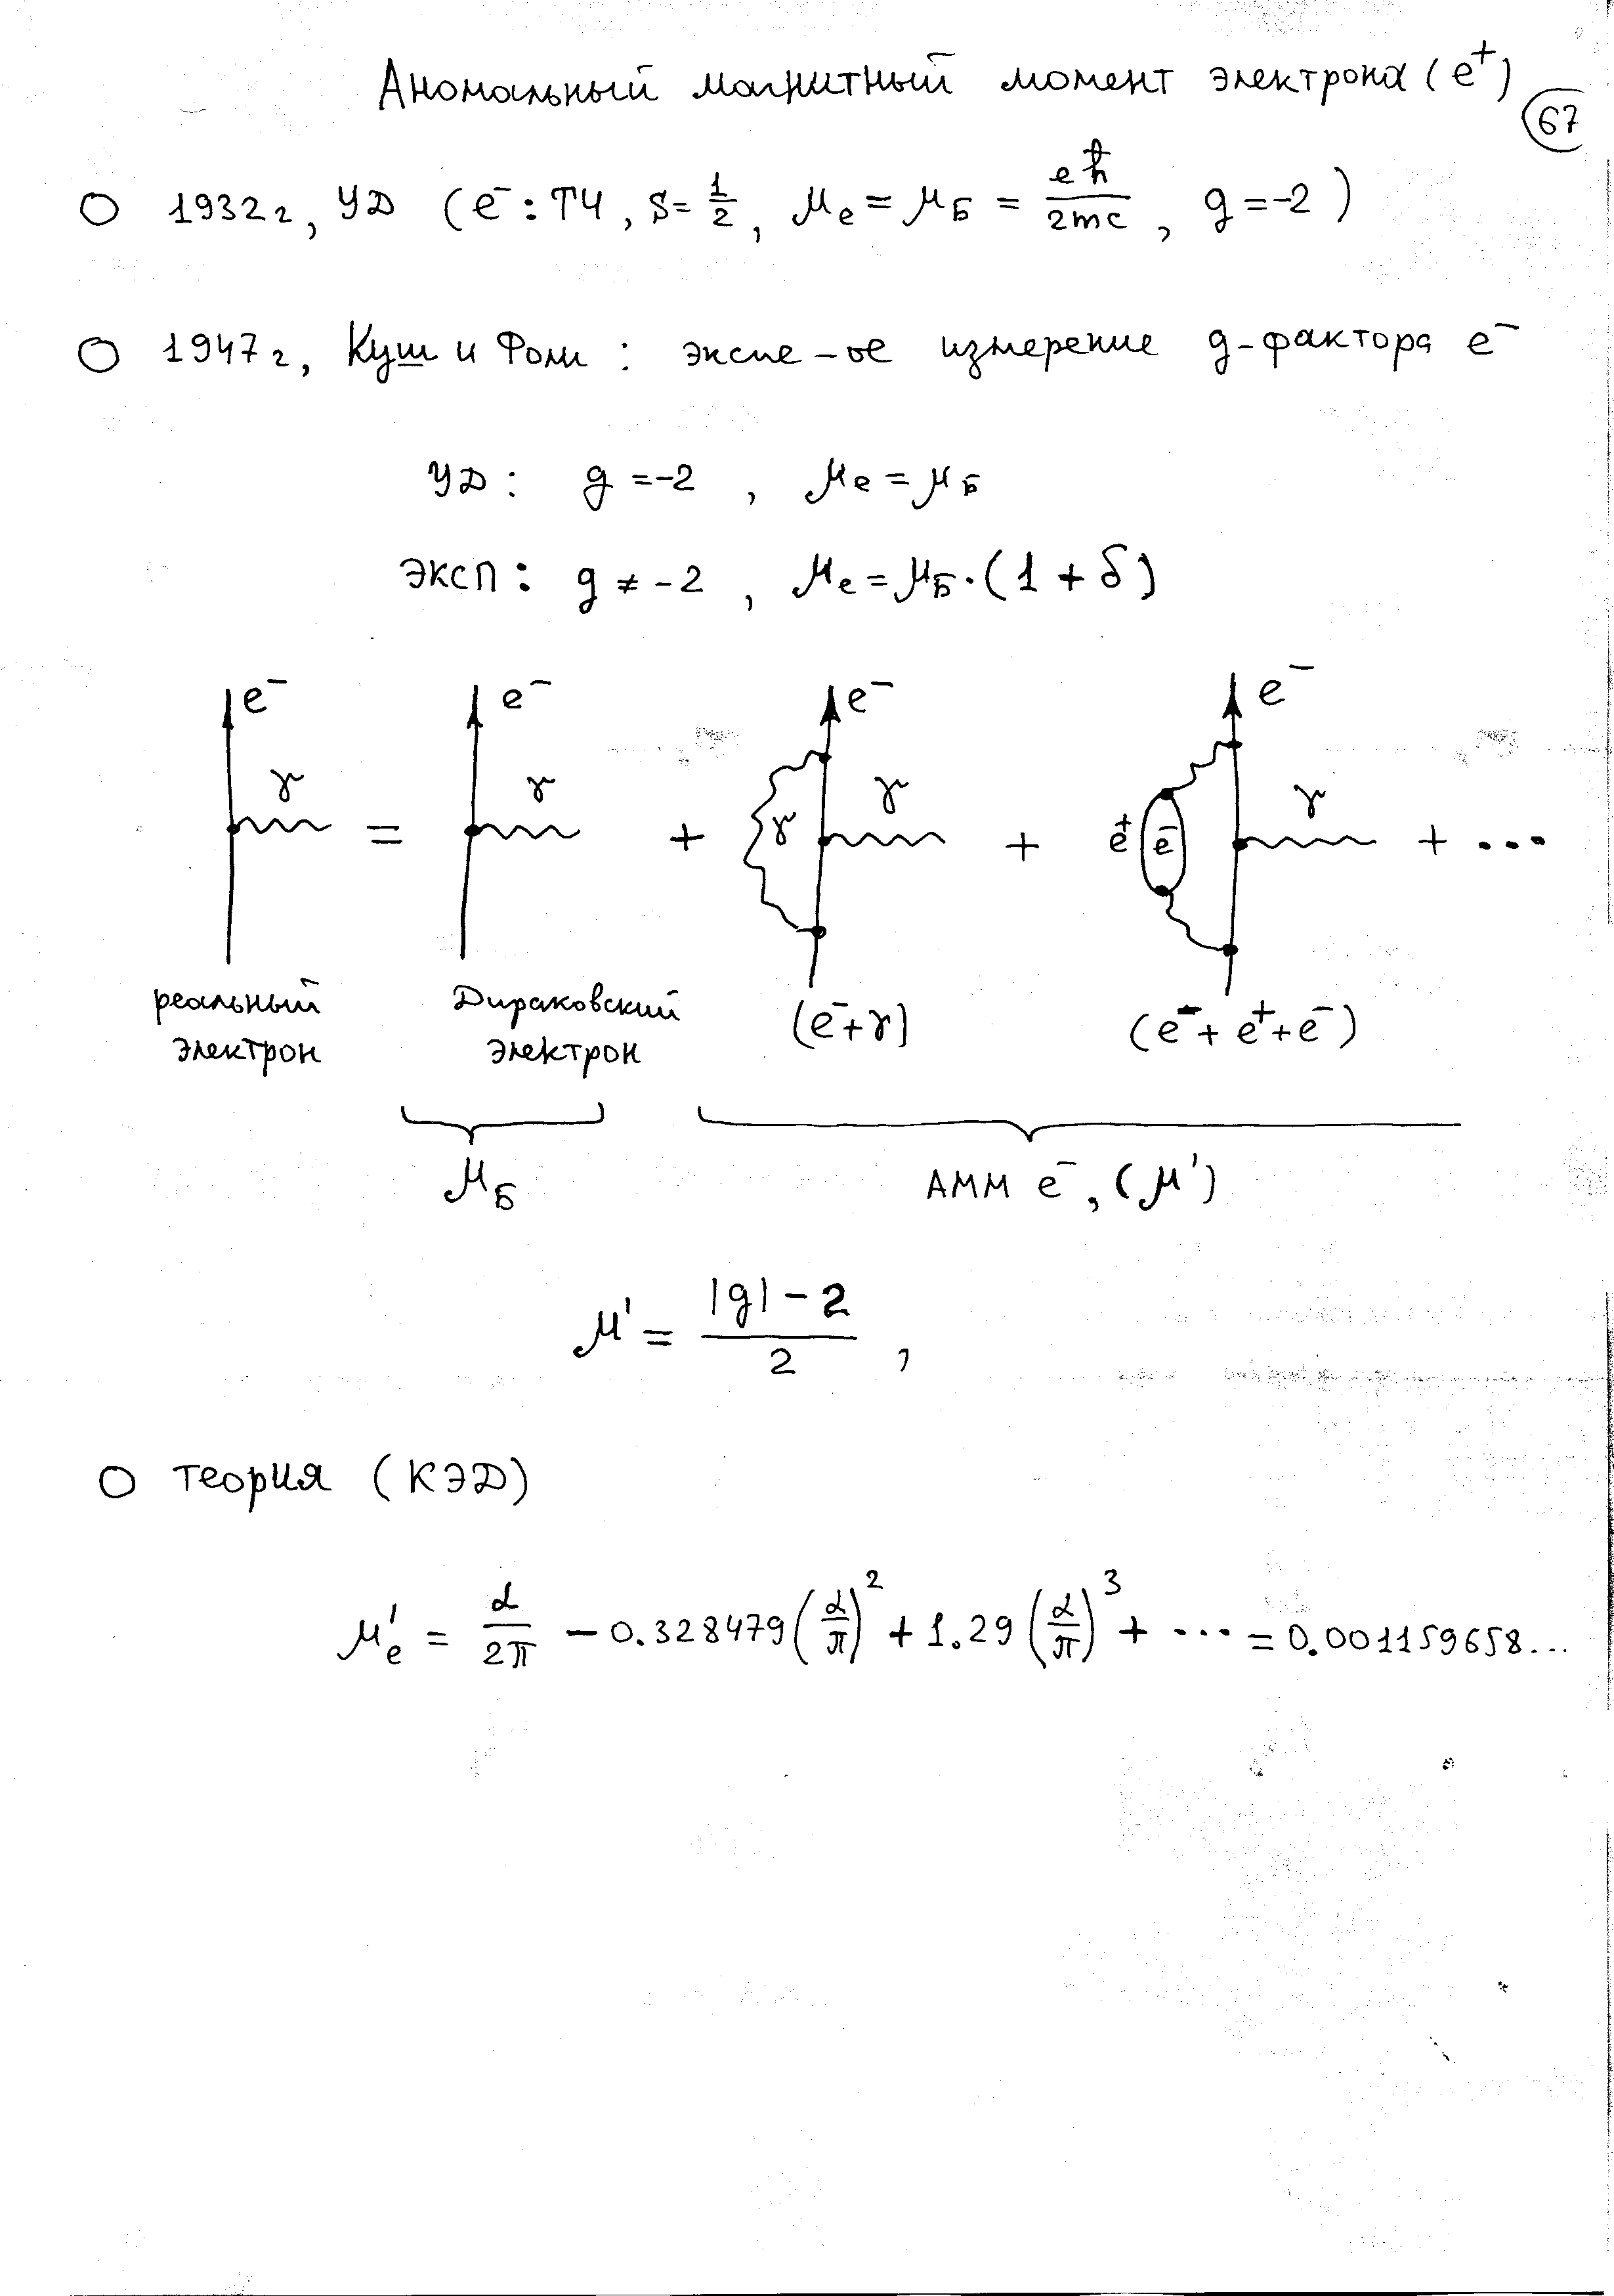 Аномальный магнитный момент электрона (e⁺)
67
○ 1932г, УД (e⁻: ТЧ, S=1/2, μe = μБ = eħ/2mc, g=-2)
○ 1947г, Куш и Фоли: экспе-ое измерение g-фактора e⁻
УД: g=-2, μe = μБ
ЭКСП: g ≠ -2, μe = μБ·(1 + δ)
e⁻ e⁻ e⁻ e⁻
γ = γ + γ γ + e⁺ e⁻ γ + ...
реальный электрон
Дираковский электрон
(e⁻+γ)
(e⁻+ e⁺+e⁻)
μБ
АММ e⁻, (μ')
μ' = |g| - 2 / 2 ,
○ теория (КЭД)
μ'e = α/2π - 0.328479(α/π)² + 1.29(α/π)³ + ... = 0.001159658...